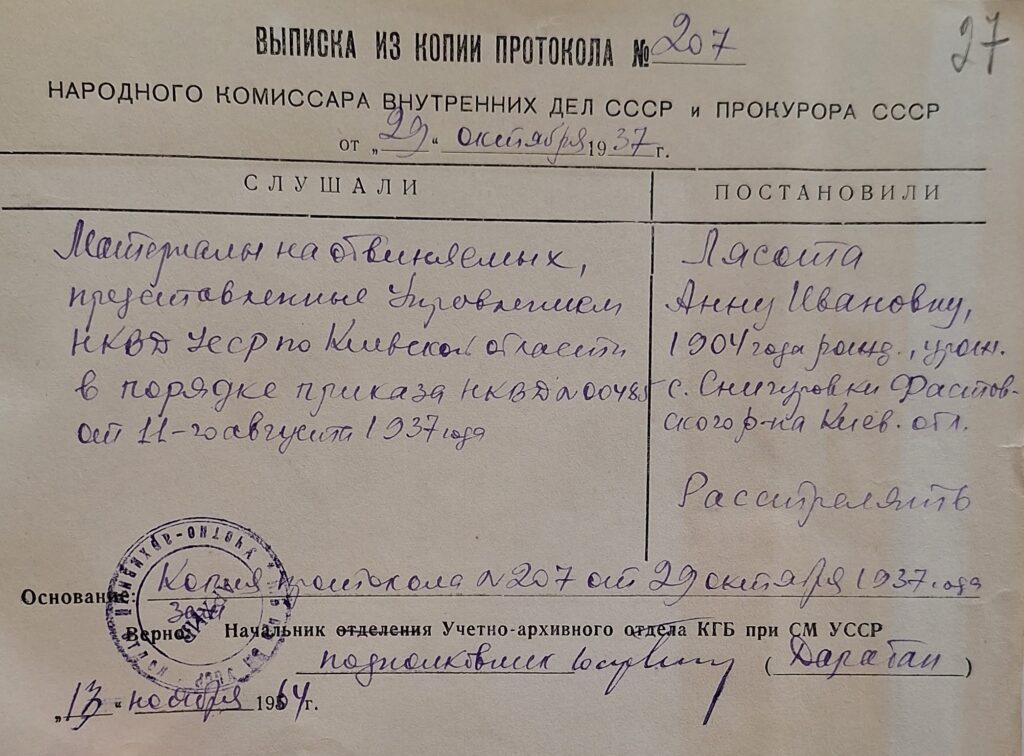 27
ВЫПИСКА ИЗ КОПИИ ПРОТОКОЛА № 207
НАРОДНОГО КОМИССАРА ВНУТРЕННИХ ДЕЛ СССР и ПРОКУРОРА СССР
от „29“ октября 1937 г.
СЛУШАЛИ
Материалы на обвиняемых,
представленные Управлением
НКВД УССР по Киевской области
в порядке приказа НКВД N 00485
от 11-го августа 1937 года
ПОСТАНОВИЛИ
Лясота
Анну Ивановну,
1904 года рожд., урож.
с. Снигуровки Фастов-
ского р-на Киев. обл.
Расстрелять
Основание: Копия протокола N 207 от 29 октября 1937 года
Зам.
Верно: Начальник отделения Учетно-архивного отдела КГБ при СМ УССР
подполковник (Дарабан)
„13“ ноября 1964 г.
Учетно-архивный